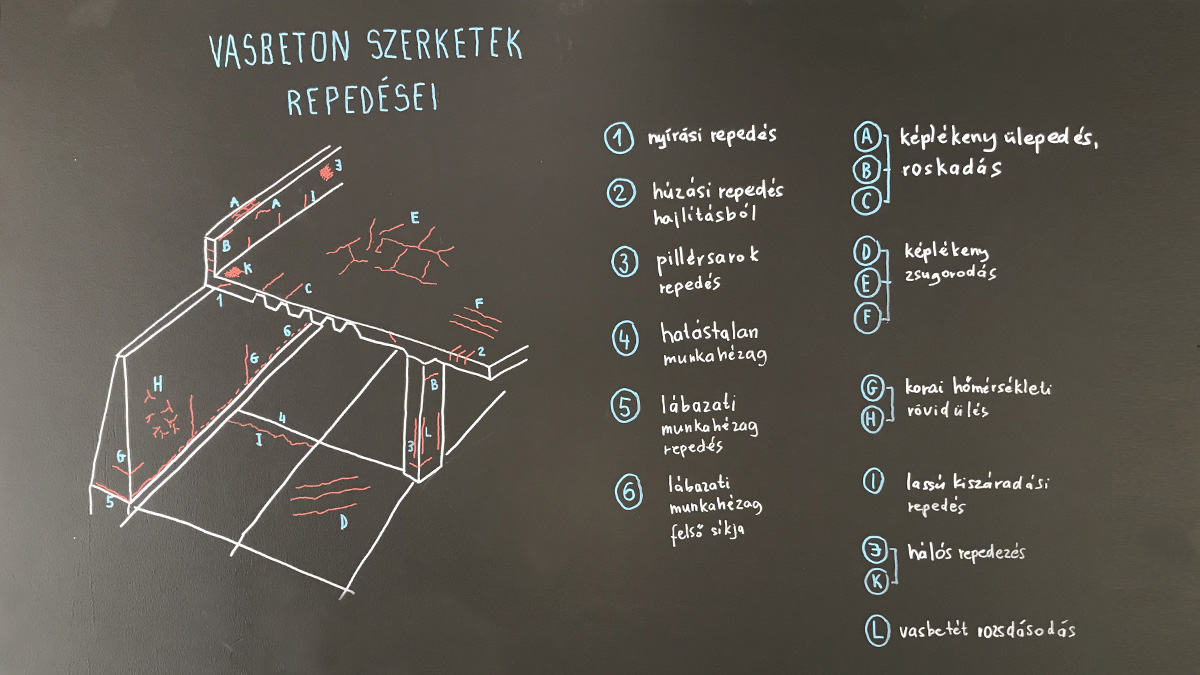 VASBETON SZERKETEK
REPEDÉSEI
A
A
J
I
B
K
1
C
E
F
2
6
G
H
4
I
B
3
L
G
5
D
1 nyírási repedés
2 húzási repedés
hajlításból
3 pillérsarok
repedés
4 hatástalan
munkahézag
5 lábazati
munkahézag
repedés
6 lábazati
munkahézag
felső síkja
A
B
C
képlékeny ülepedés,
roskadás
D
E
F
képlékeny
zsugorodás
G
H
korai hőmérsékleti
rövidülés
I lassú kiszáradási
repedés
J
K
hálós repedezés
L vasbetét rozsdásodás